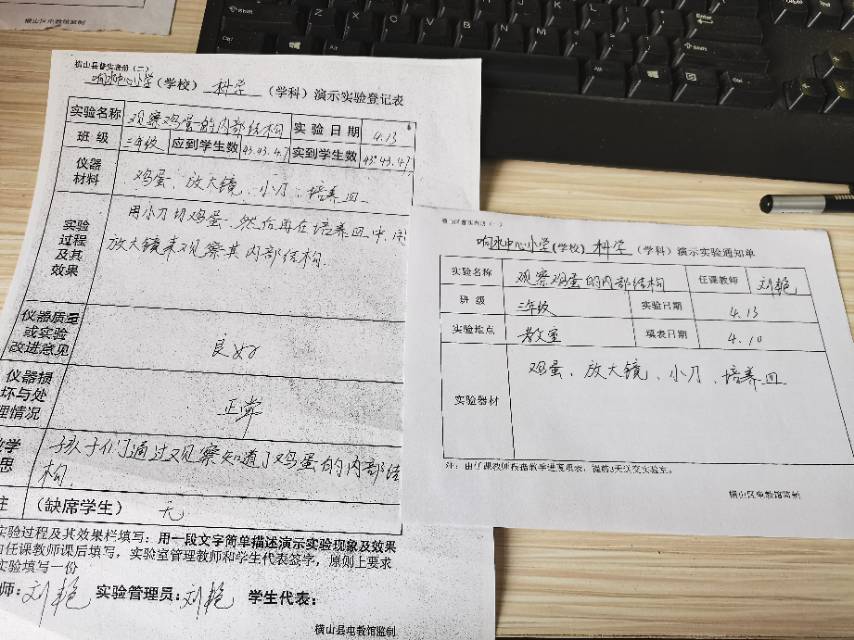 横山区电教馆监制
横山县督实表册（二）
响水中心小学（学校） 科学 （学科）演示实验登记表
实验名称 观察鸡蛋的内部结构 实验日期 4.13
班级 三年级 应到学生数 43.43.47 实到学生数 43.43.47
仪器材料 鸡蛋、放大镜、小刀、培养皿
实验过程及其效果 用小刀切鸡蛋，然后再在培养皿中，用
放大镜来观察其内部结构.
仪器质量或实验改进意见 良好
仪器损坏与处理情况 正常
学 思 孩子们通过观察知道了鸡蛋的内部结
构.
注 （缺席学生） 无
实验过程及其效果栏填写：用一段文字简单描述演示实验现象及效果
由任课教师课后填写，实验室管理教师和学生代表签字，原则上要求
实验填写一份
师：刘艳 实验管理员：刘艳 学生代表：
横山县电教馆监制
响水中心小学（学校） 科学 （学科）演示实验通知单
实验名称 观察鸡蛋的内部结构 任课教师 刘艳
班级 三年级 实验日期 4.13
实验地点 教室 填表日期 4.10
实验器材 鸡蛋、放大镜、小刀、培养皿
注：由任课教师根据教学进度填表，提前3天送交实验室。
横山区电教馆监制